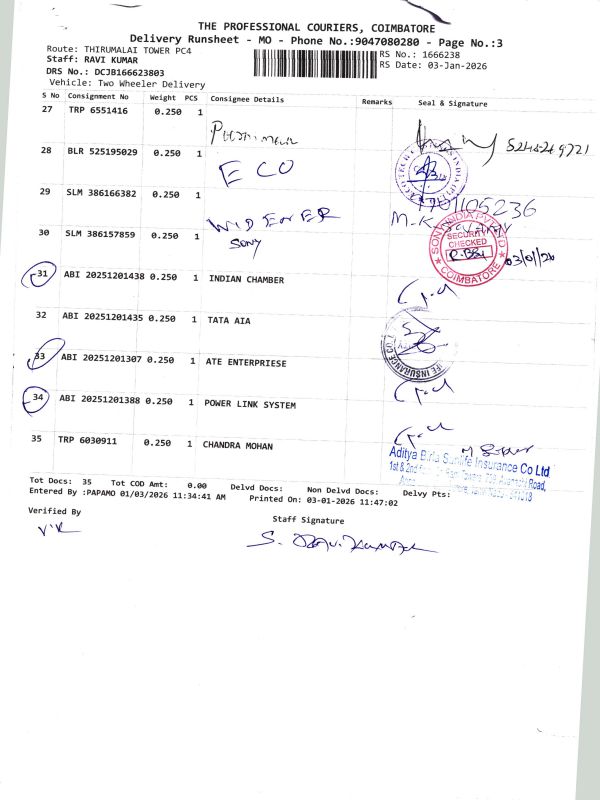 THE PROFESSIONAL COURIERS, COIMBATORE
Delivery Runsheet - MO - Phone No.:9047080280 - Page No.:3
Route: THIRUMALAI TOWER PC4
RS No.: 1666238
Staff: RAVI KUMAR
RS Date: 03-Jan-2026
DRS No.: DCJB166623803
Vehicle: Two Wheeler Delivery
S No Consignment No Weight PCS Consignee Details Remarks Seal & Signature
27 TRP 6551416 0.250 1
28 BLR 525195029 0.250 1 ECO
29 SLM 386166382 0.250 1
WIDENER
30 SLM 386157859 0.250 1 SONY
SONY INDIA PVT LTD
SECURITY CHECKED
COIMBATORE
03/01/26
31 ABI 20251201438 0.250 1 INDIAN CHAMBER
32 ABI 20251201435 0.250 1 TATA AIA
33 ABI 20251201307 0.250 1 ATE ENTERPRIESE
34 ABI 20251201388 0.250 1 POWER LINK SYSTEM
35 TRP 6030911 0.250 1 CHANDRA MOHAN
Aditya Birla Sunlife Insurance Co Ltd
Tot Docs: 35 Tot COD Amt: 0.00 Delvd Docs: Non Delvd Docs: Delvy Pts:
Entered By :PAPAMO 01/03/2026 11:34:41 AM Printed On: 03-01-2026 11:47:02
Verified By
Staff Signature
S. Ravi Kumar